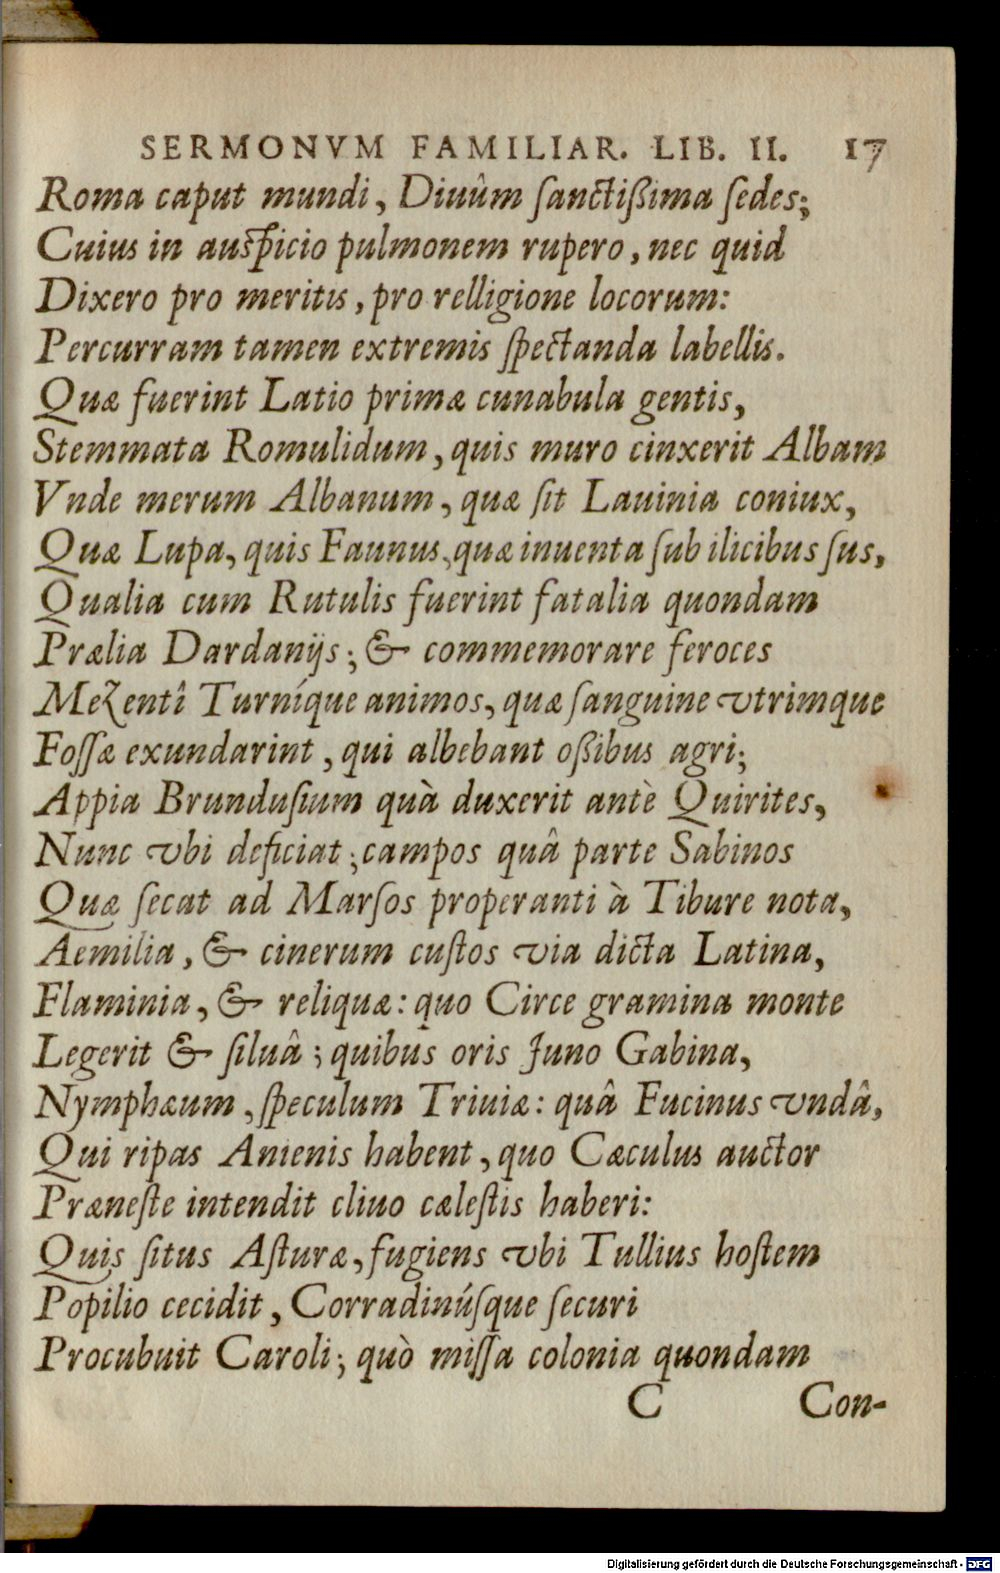 SERMONVM FAMILIAR. LIB. II. 17
Roma caput mundi, Diuûm ſanctißima ſedes;
Cuius in auſpicio pulmonem rupero, nec quid
Dixero pro meritis, pro relligione locorum:
Percurram tamen extremis ſpectanda labellis.
Quæ fuerint Latio primæ cunabula gentis,
Stemmata Romulidum, quis muro cinxerit Albam
Vnde merum Albanum, quæ ſit Lauinia coniux,
Quæ Lupa, quis Faunus, quæ inuenta ſub ilicibus ſus,
Qualia cum Rutulis fuerint fatalia quondam
Prælia Dardanijs; & commemorare feroces
Mezentî Turníque animos, quæ ſanguine vtrimque
Foſſæ exundarint, qui albebant oßibus agri;
Appia Brunduſium quà duxerit antè Quirites,
Nunc vbi deficiat; campos quâ parte Sabinos
Quæ ſecat ad Marſos properanti à Tibure nota,
Aemilia, & cinerum cuſtos via dicta Latina,
Flaminia, & reliquæ: quo Circe gramina monte
Legerit & ſiluâ; quibus oris Juno Gabina,
Nymphæum, ſpeculum Triuiæ: quâ Fucinus vndâ,
Qui ripas Anienis habent, quo Cæculus auctor
Præneſte intendit cliuo cæleſtis haberi:
Quis ſitus Aſturæ, fugiens vbi Tullius hoſtem
Popilio cecidit, Corradinúſque ſecuri
Procubuit Caroli; quò miſſa colonia quondam
C Con-
Digitalisierung gefördert durch die Deutsche Forschungsgemeinschaft - DFG